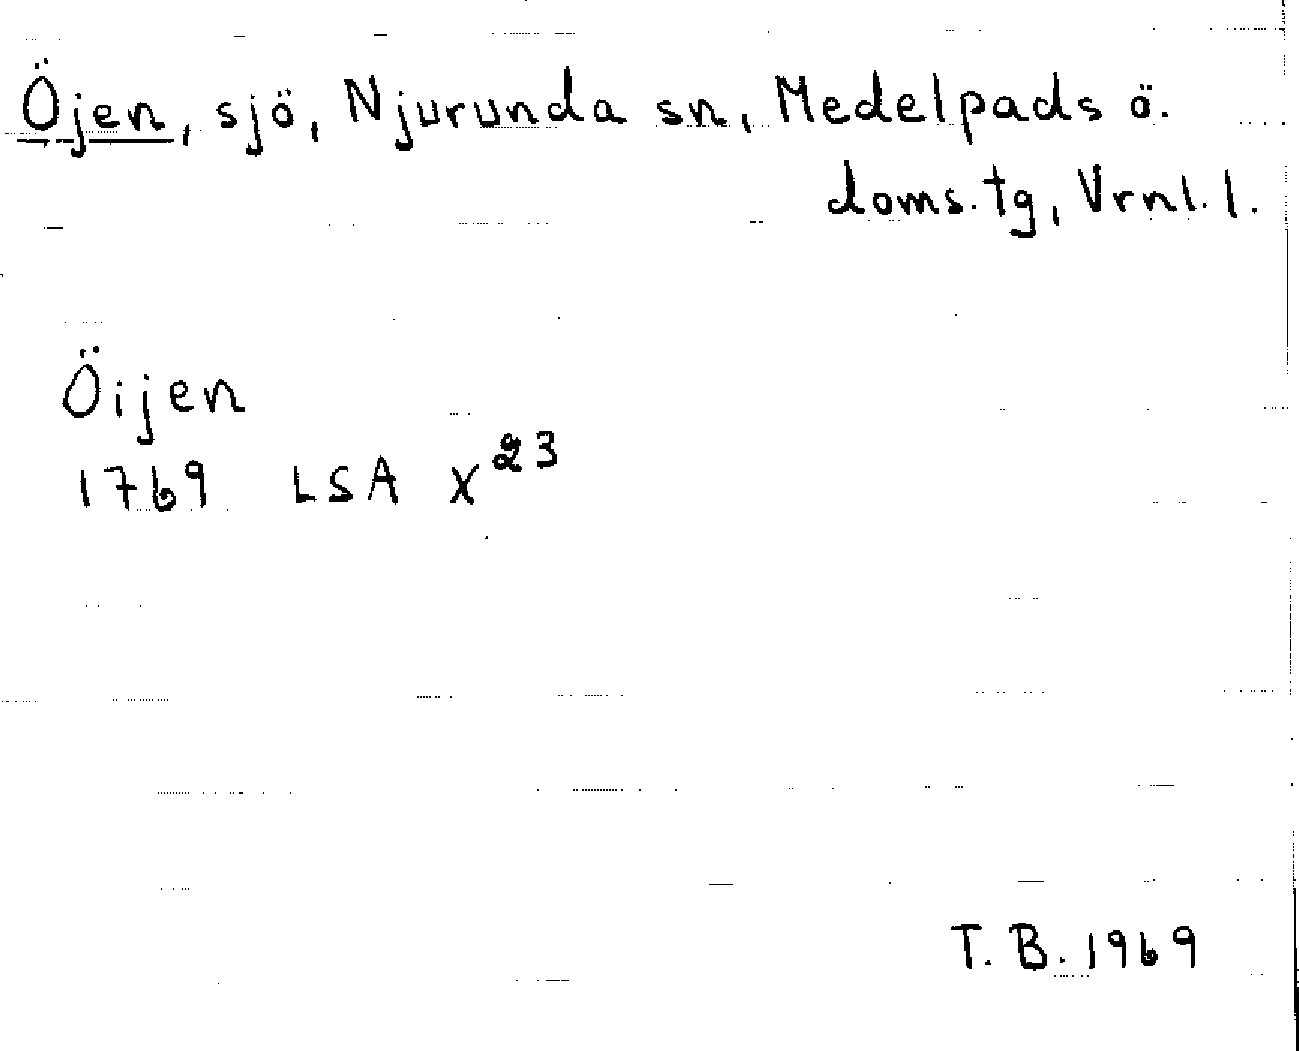 Öjen, sjö, Njurunda sn, Medelpads ö.
doms.tg, Vrnl. l.
Öijen
1769 LSA X²³
T. B. 1969